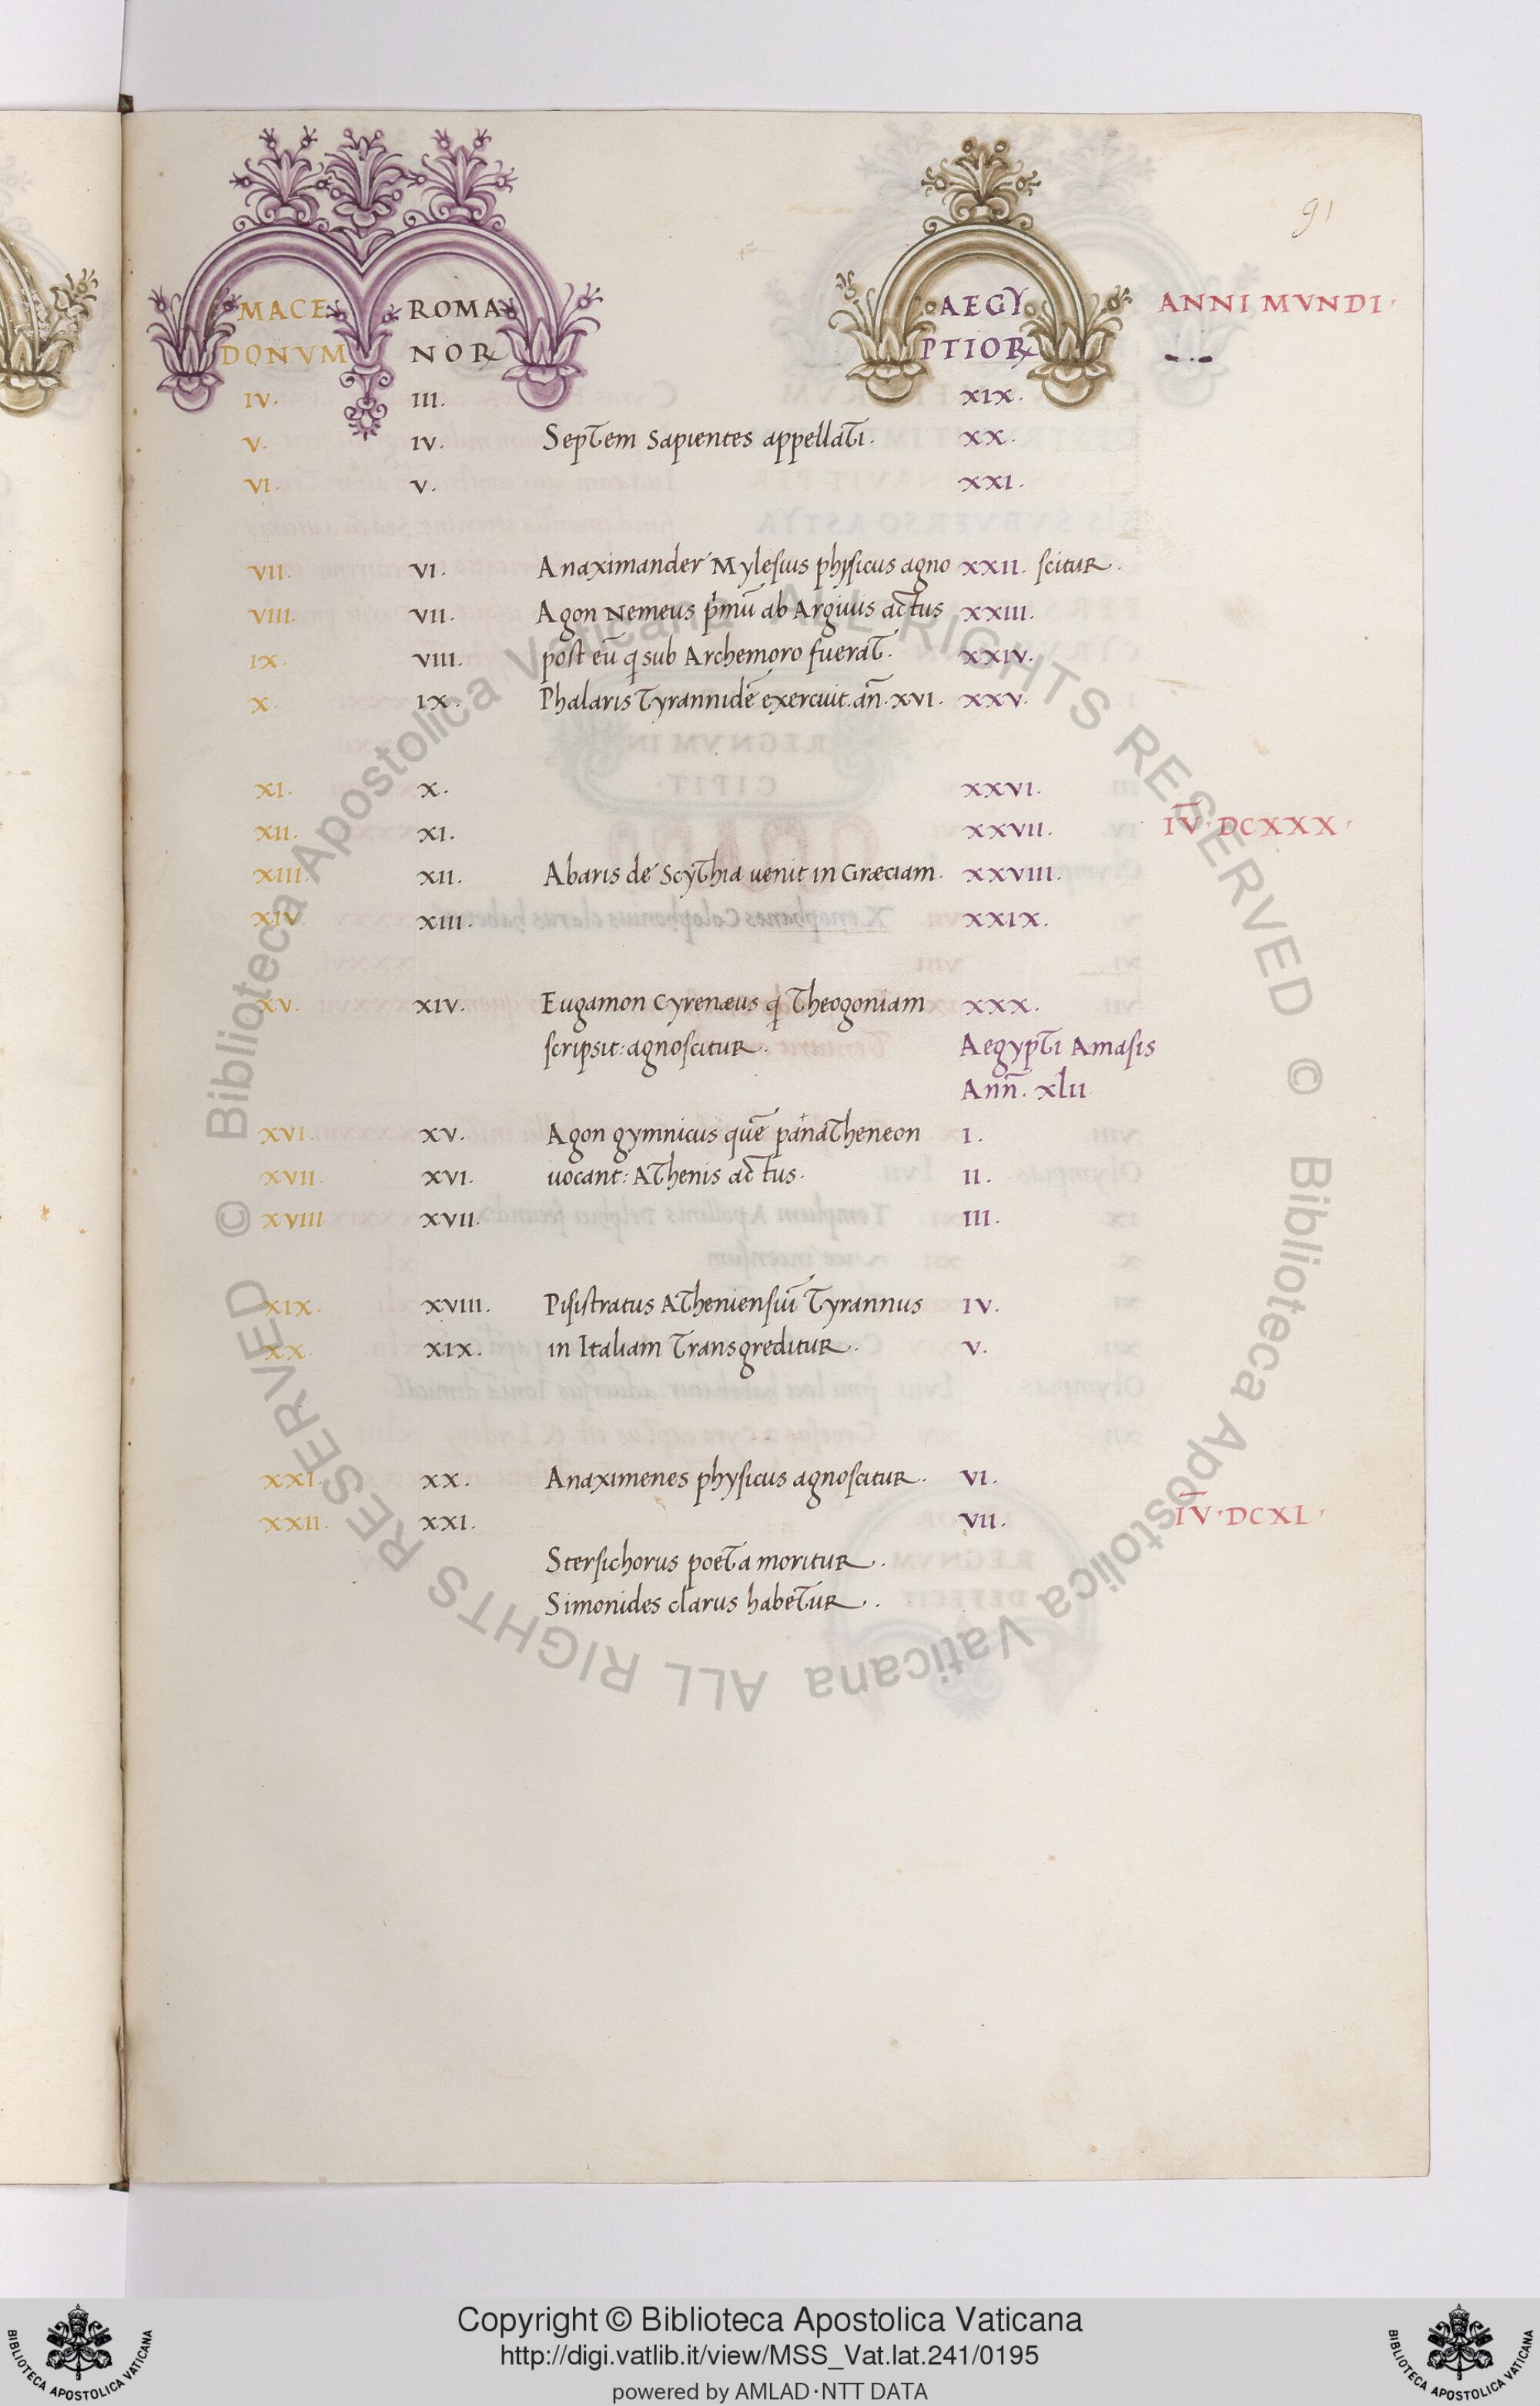 91
MACE ROMA AEGY ANNI MVNDI
DONVM NOꝜ PTIOꝜ
IV. III. XIX.
V. IV. Septem Sapientes appellati. XX.
VI. V. XXI.
VII. VI. Anaximander Mylesius physicus agno XXII. scitur.
VIII. VII. Agon Nemeus pͥmū ab Argiuis actus XXIII.
IX. VIII. post eū q sub Archemoro fuerat. XXIV.
X. IX. Phalaris Tyrannidē exercuit. an̄. XVI. XXV.
XI. X. XXVI.
XII. XI. XXVII. I̅V̅. DCXXX.
XIII. XII. Abaris de Scythia uenit in Græciam. XXVIII.
XIV. XIII. XXIX.
XV. XIV. Eugamon Cyrenæus q Theogoniam XXX.
scripsit: agnoscitur. Aegypti Amasis
Ann̄. xlii
XVI. XV. Agon gymnicus quē panatheneon I.
XVII. XVI. uocant: Athenis actus. II.
XVIII XVII. III.
XIX. XVIII. Pisistratus Atheniensiū Tyrannus IV.
XX. XIX. in Italiam Transgreditur. V.
XXI. XX. Anaximenes physicus agnoscitur. VI.
XXII. XXI. VII. I̅V̅. DCXL.
Stersichorus poeta moritur.
Simonides clarus habetur.
© Biblioteca Apostolica Vaticana ALL RIGHTS RESERVED
© Biblioteca Apostolica Vaticana ALL RIGHTS RESERVED
Copyright © Biblioteca Apostolica Vaticana
http://digi.vatlib.it/view/MSS_Vat.lat.241/0195
powered by AMLAD·NTT DATA
BIBLIOTECA APOSTOLICA VATICANA
BIBLIOTECA APOSTOLICA VATICANA